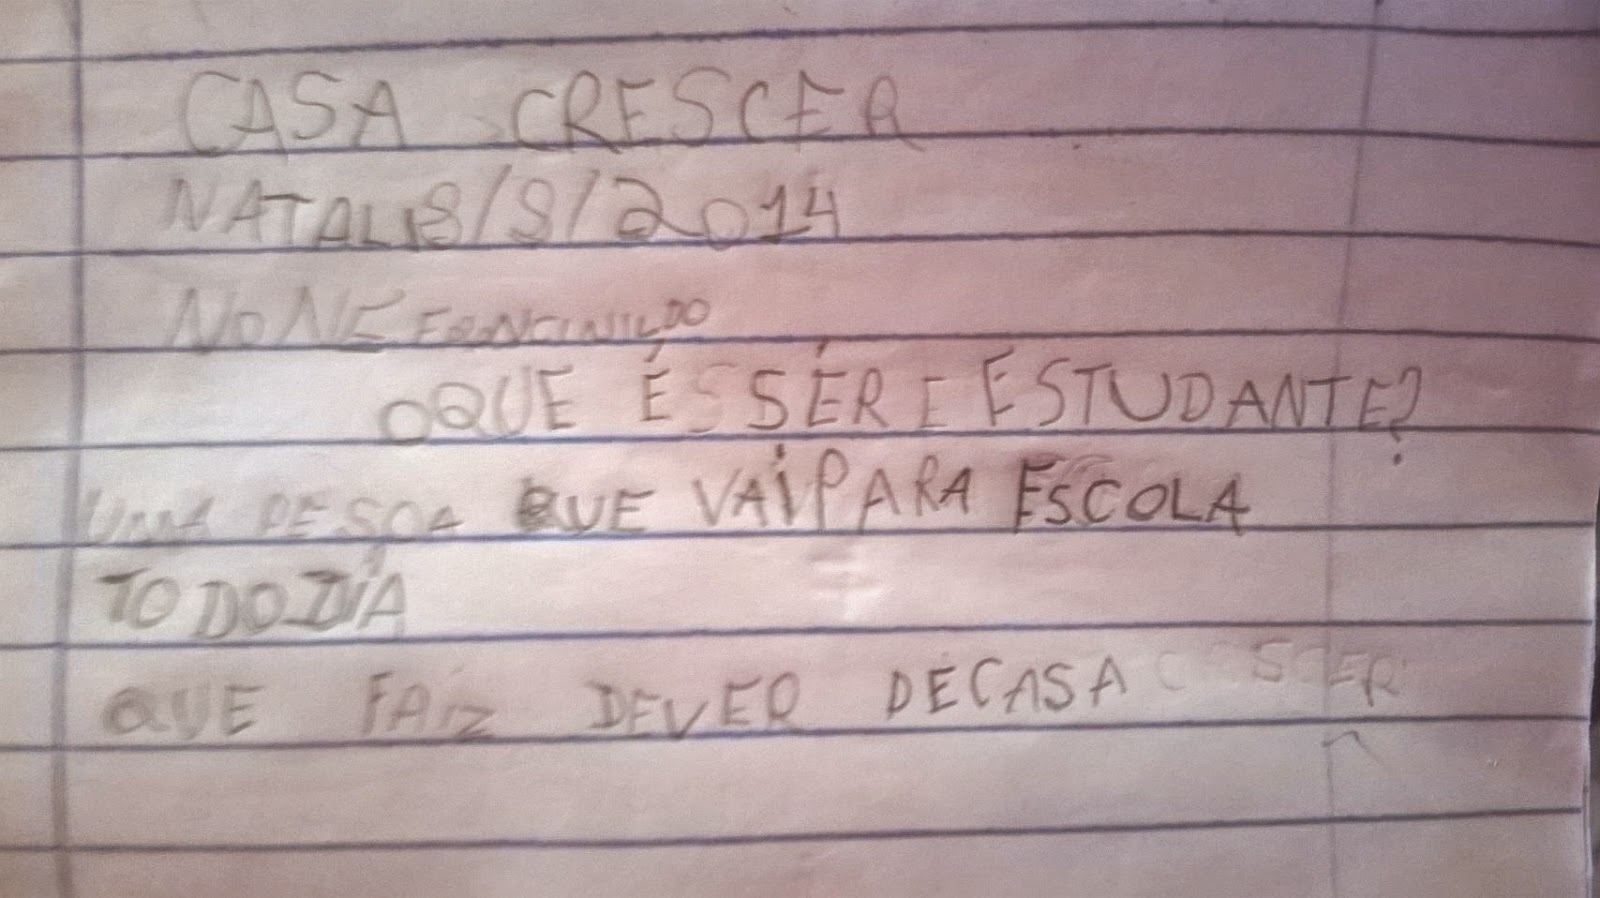 CASA CRESCER
NATAL 18/8/2014
NONE FRANCINILDO
OQUE É SÉR E ESTUDANTE?
UMA PESOA QUE VAI PARA ESCOLA
TODO DIA
QUE FAIZ DEVER DE CASA